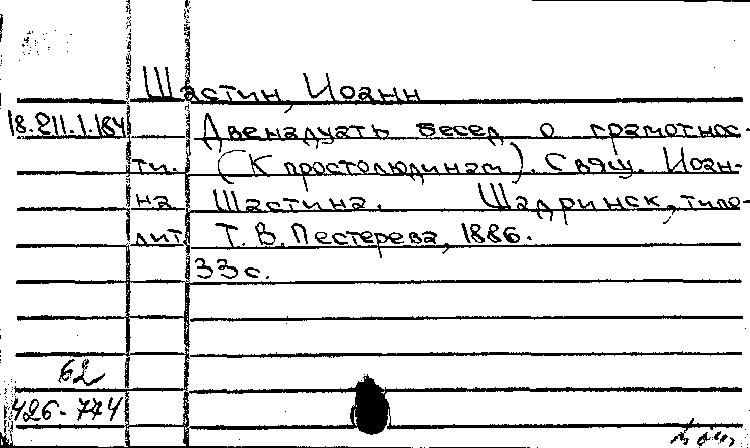 Шастин, Иоанн
18.211.1.184 Двенадцать бесед о грамотнос-
ти. (К простолюдинам). Свящ. Иоан-
на Шастина. Шадринск, типо-
лит. Т. В. Пестерева, 1886.
33 с.
62
426-774